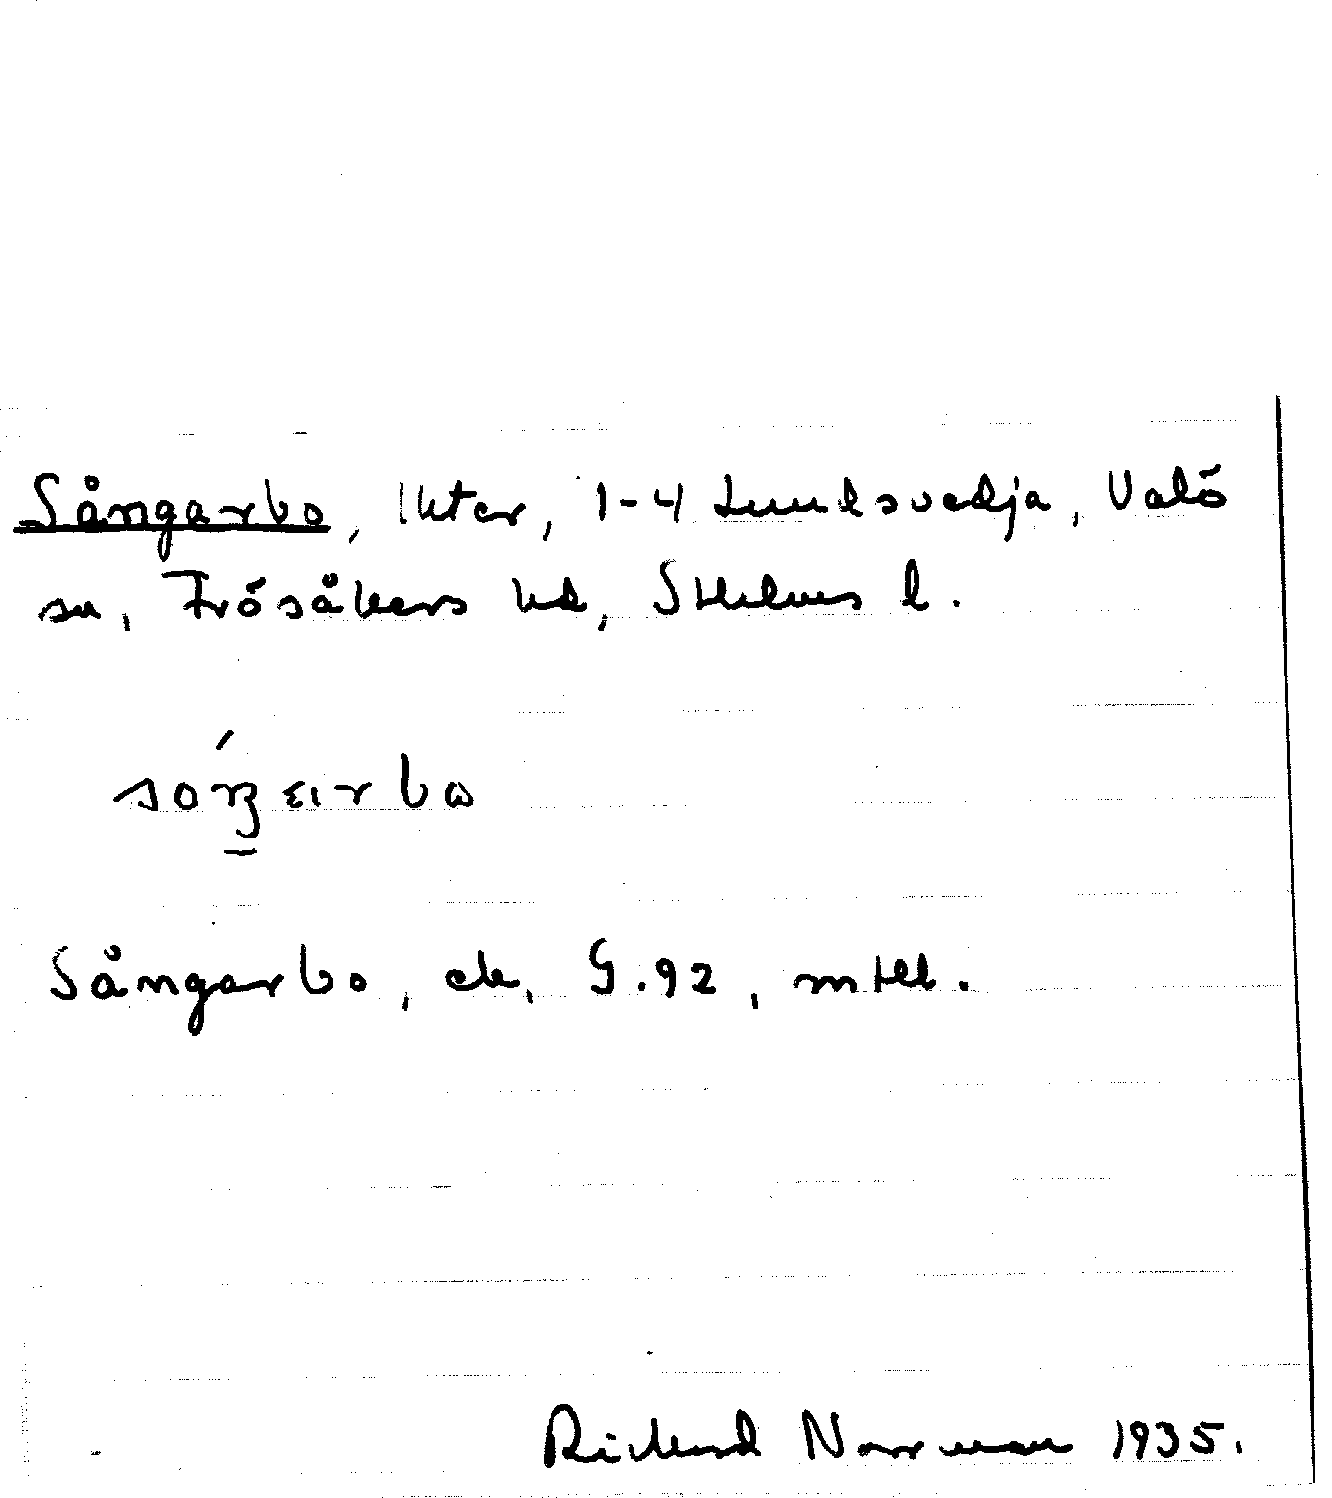 Sångarbo, lhter, 1-4 Lundsvedja, Valö
sn, Frösåkers hd, Sthlms l.
Sångarbo, ek, G.92, mtll.
Rickard Norrman 1935.